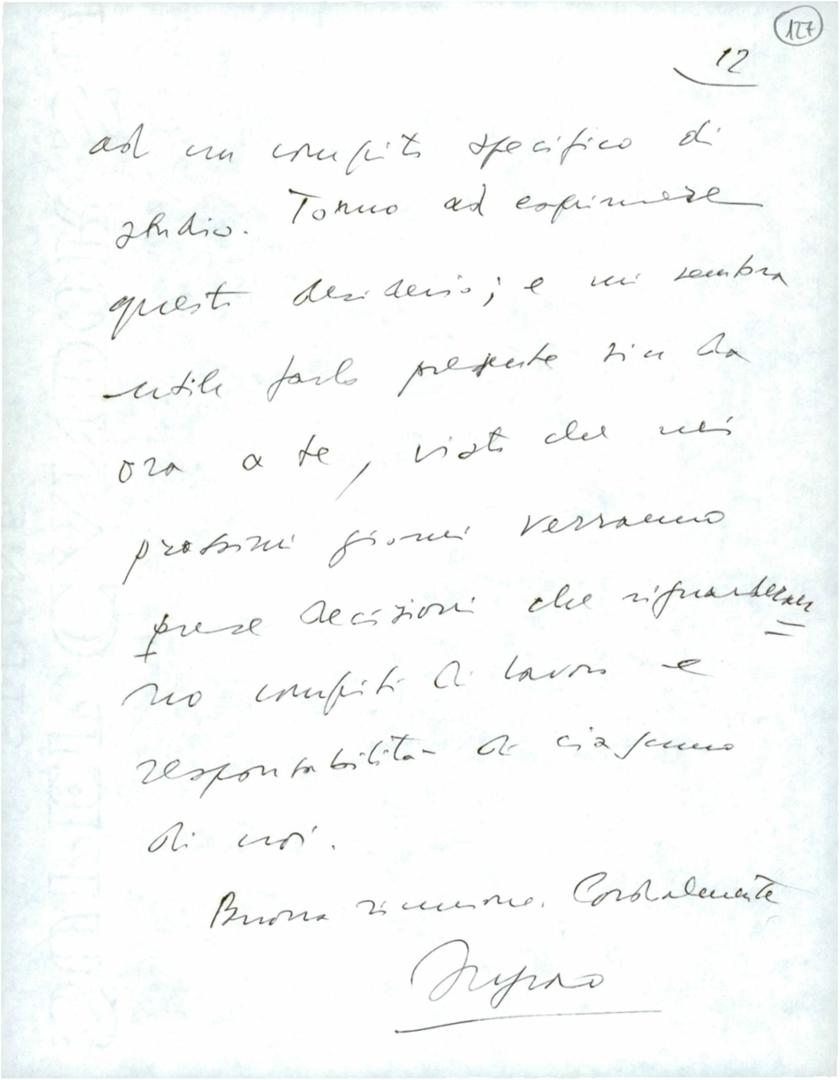 127
12
ad un compito specifico di
studio. Torno ad esprimere
questo desiderio; e mi sembra
utile farlo presente sin da
ora a te, visto che nei
prossimi giorni verranno
prese decisioni che riguarderan=
no compiti di lavoro e
responsabilità di ciascuno
di noi.
Buona riunione. Cordialmente